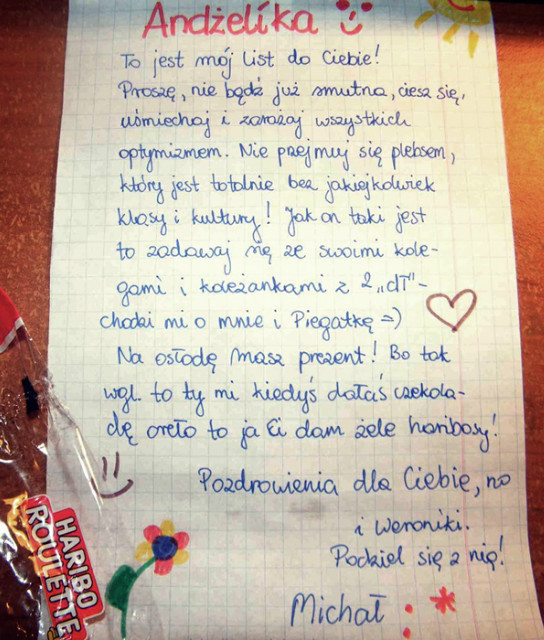 Andżelika
To jest mój list do Ciebie!
Proszę, nie bądź już smutna, ciesz się,
uśmiechaj i zarażaj wszystkich
optymizmem. Nie przejmuj się plebsem,
który jest totalnie bez jakiejkolwiek
klasy i kultury! Jak on taki jest
to zadawaj się ze swoimi kole-
gami i koleżankami z 2 „dT"-
chodzi mi o mnie i Piegatkę =)
Na osłodę masz prezent! Bo tak
wgl. to ty mi kiedyś dałaś czekola-
dę oreło to ja Ci dam żele haribosy!
Pozdrowienia dla Ciebie, no
i Weroniki.
Podziel się z nią!
Michał
HARIBO
ROULETTE